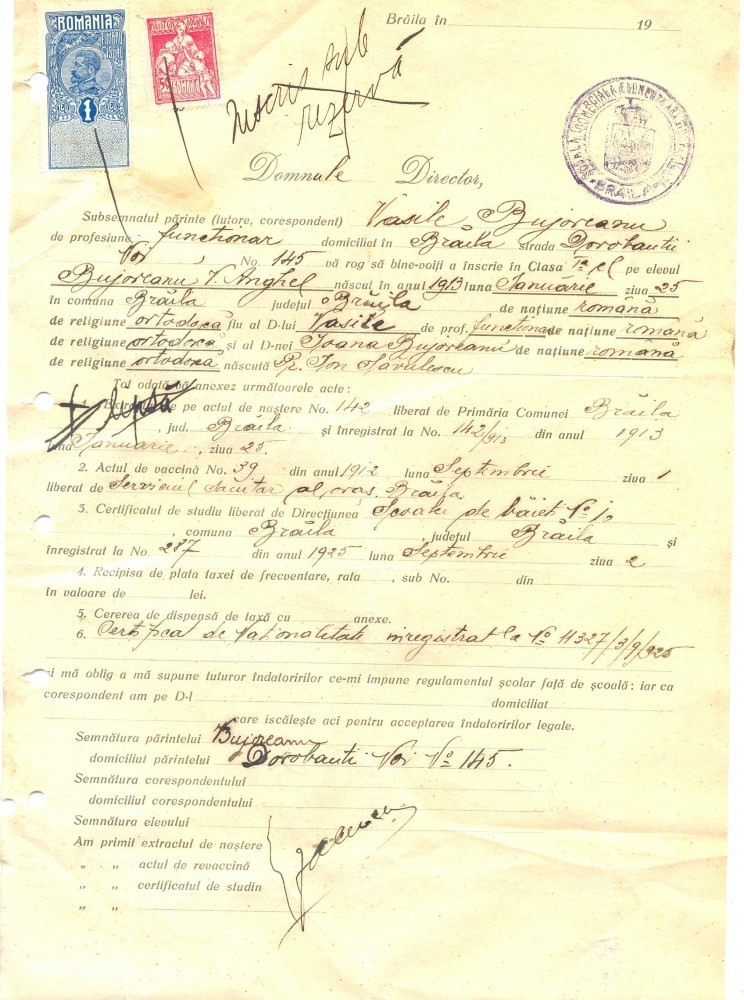 ROMANIA
TIMBRU FISCAL
1
ROMANIA
Brăila în 19
Inscris sub
rezervă
BRĂILA
Domnule Director,
Subsemnatul părinte (tutore, corespondent) Vasile Bujoreanu
de profesiune functionar domiciliat în Brăila strada Dorobantii
Noi No. 145 vă rog să bine-voiţi a înscrie în Clasa pe elevul
Bujoreanu V. Anghel născut în anul 1913 luna Ianuarie ziua 25
în comuna Brăila judeţul Brăila de naţiune română
de religiune ortodoxă fiu al D-lui Vasile de prof. functionar de naţiune romană
de religiune ortodoxa şi al D-nei Ioana Bujoreanu de naţiune română
de religiune ortodoxă născută Gr. Ion
Tot odată vă anexez următoarele acte:
lipsă
1. Extractul de pe actul de naştere No. 142 liberat de Primăria Comunei Brăila
, jud. Braila şi înregistrat la No. 142/913 din anul 1913
luna Ianuarie, ziua 25.
2. Actul de vaccină No. 39 din anul 1912 luna Septembrie ziua 1
liberat de Serviciul Sanitar al oraş. Brăila
3. Certificatul de studiu liberat de Direcţiunea Scoalei de băieti No 1.
, comuna Brăila, judeţul Brăila şi
înregistrat la No. 287 din anul 1925 luna Septembrie ziua 2
4. Recipisa de plata taxei de frecventare, rata , sub No. din
în valoare de lei.
5. Cererea de dispensă de taxă cu anexe.
6. Certificat de Nationalitate inregistrat la No 11327/3/9/925
şi mă oblig a mă supune tuturor îndatoririlor ce-mi impune regulamentul şcolar faţă de şcoală: iar ca
corespondent am pe D-l domiciliat
care iscăleşte aci pentru acceptarea îndatoririlor legale.
Semnătura părintelui Bujoreanu
domiciliul părintelui Dorobanti Noi No 145.
Semnătura corespondentului
domiciliul corespondentului
Semnătura elevului
Am primit extractul de naştere
„ „ actul de revaccină
„ „ certificatul de studin
„ „